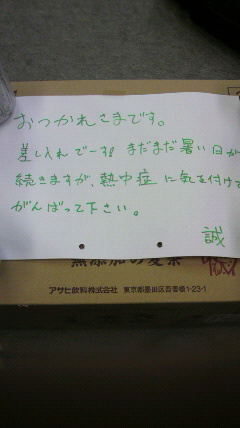 おつかれさまです。
差し入れでーす! まだまだ暑い日が
続きますが、熱中症に気を付けて
がんばって下さい。
誠
アサヒ飲料株式会社 東京都墨田区吾妻橋1-23-1